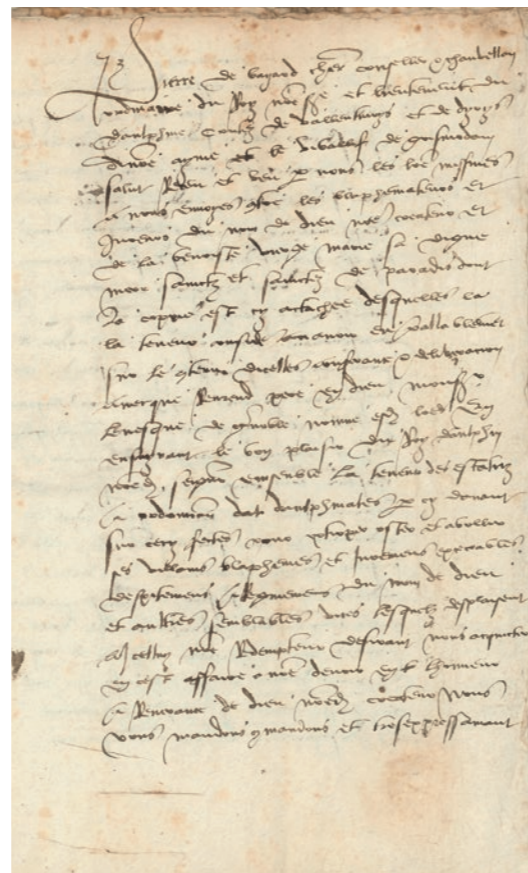 Pierre de bayard cher conseller & chambellan
ordinaire du Roy nre sre et lieutenent du
daulphine Contez de Vallentinoys et de dyoys
A nre ayme et le viballif de gresivodan
salut Receu et veu p nous les lres missives
a nous envoyes contre les blasphemateurs et
Jureurs du nom de dieu nre createur et
de la benoiste vierge marie sa digne
mere sainctz et sainctes de paradis dont
la coppie est cy actachee desquelles la
la teneur en
sur le contenu dicelles & deliberacion
avecque Reverend pere en dieu monsr
levesque de grenoble nomme esd lres En
ensuyvant le bon plaisir du Roy daulphin
nred seigneur ensemble la teneur des estatutz
& ordonnances daulphinales p cy devant
sur cecy faictes pour oster et abollir
les villains blasphemes et Juremens execrables
despitemens & Regniemens du nom de dieu
et aultres semblables vices lesquelz desplaisent
a icelluy nre Redempteur desirant nous acquicter
en cest affaire a nre devoir en lhonneur
& Reverance de dieu nred createur Nous
vous mandons comandons et tresexpressemant